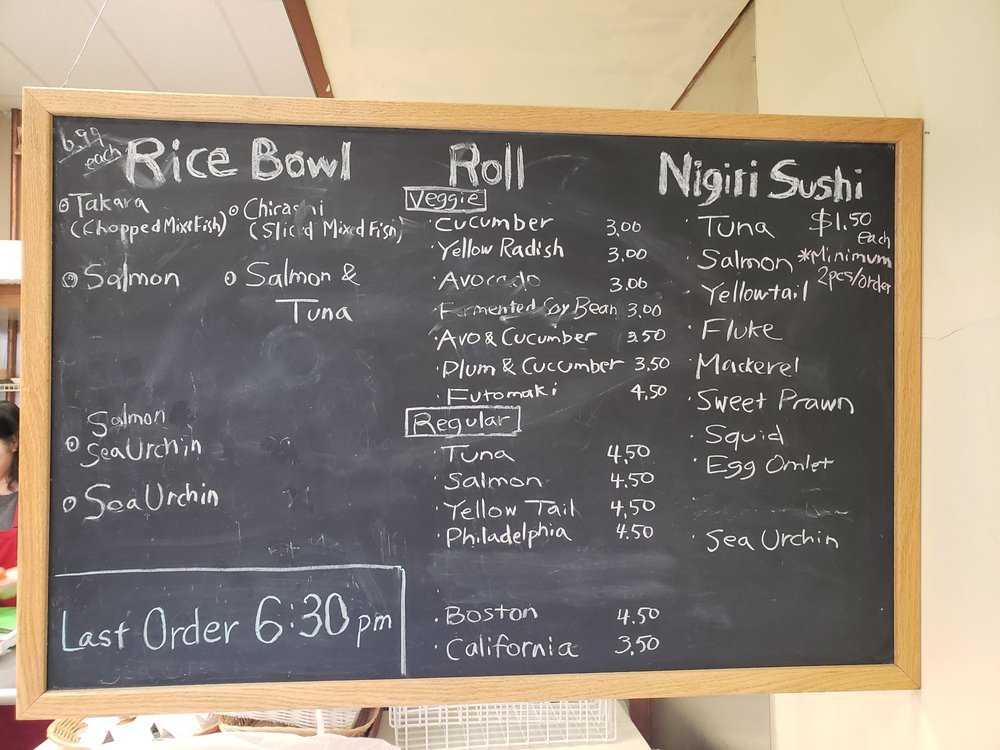 6.99
each
Rice Bowl
Takara
(Chopped Mixed Fish)
Chirashi
(Sliced Mixed Fish)
Salmon
Salmon &
Tuna
Salmon
Sea Urchin
Sea Urchin
Last Order 6:30 pm
Roll
Veggie
Cucumber 3.00
Yellow Radish 3.00
Avocado 3.00
Fermented Soy Bean 3.00
Avo & Cucumber 3.50
Plum & Cucumber 3.50
Futomaki 4.50
Regular
Tuna 4.50
Salmon 4.50
Yellow Tail 4.50
Philadelphia 4.50
Boston 4.50
California 3.50
Nigiri Sushi
Tuna $1.50
each
Salmon *Minimum
2pcs/order
Yellowtail
Fluke
Mackerel
Sweet Prawn
Squid
Egg Omlet
Sea Urchin